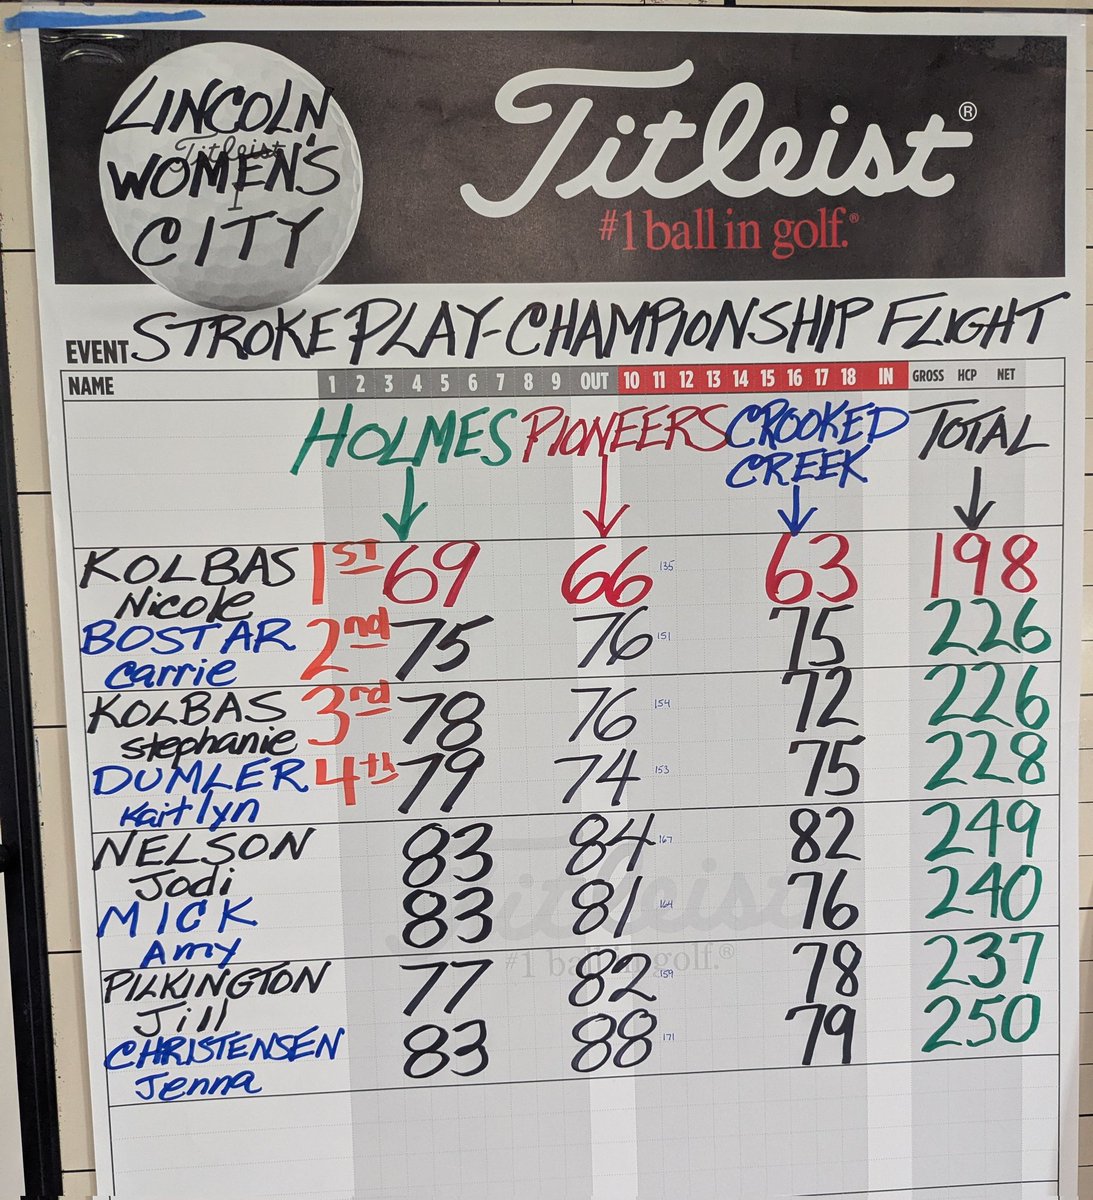 LINCOLN
Titleist
WOMEN'S
CITY
Titleist®
#1 ball in golf.®
EVENT STROKE PLAY-CHAMPIONSHIP FLIGHT
NAME 1 2 3 4 5 6 7 8 9 OUT 10 11 12 13 14 15 16 17 18 IN GROSS HCP NET
HOLMES PIONEERS CROOKED CREEK TOTAL
KOLBAS Nicole 1ST 69 66 135 63 198
BOSTAR Carrie 2nd 75 76 151 75 226
KOLBAS Stephanie 3rd 78 76 154 72 226
DUMLER Kaitlyn 4th 79 74 153 75 228
NELSON Jodi 83 84 167 82 249
MICK Amy 83 81 164 76 240
Titleist
#1 ball in golf.®
PILKINGTON Jill 77 82 159 78 237
CHRISTENSEN Jenna 83 88 171 79 250